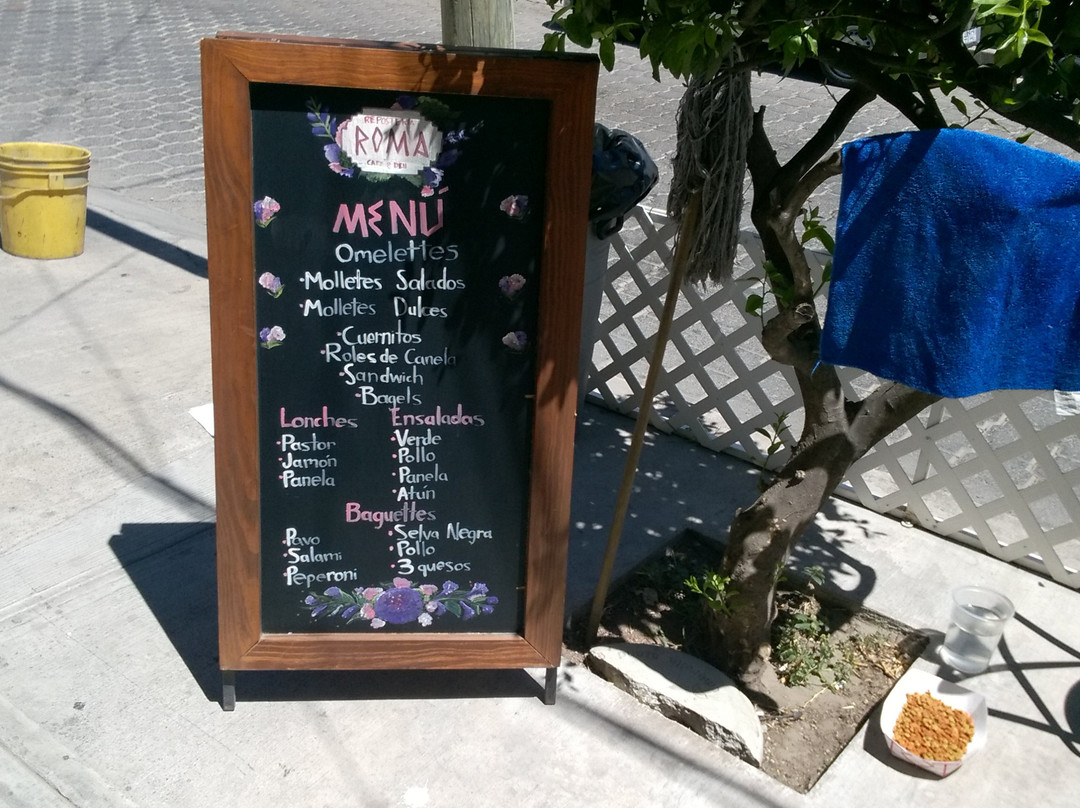 REPOSTERÍA
ROMA
CAFÉ & DELI
MENÚ
Omelettes
·Molletes Salados
·Molletes Dulces
·Cuernitos
·Roles de Canela
·Sandwich
·Bagels
Lonches
·Pastor
·Jamón
·Panela
Ensaladas
·Verde
·Pollo
·Panela
·Atún
Baguettes
·Pavo
·Salami
·Peperoni
·Selva Negra
·Pollo
·3 quesos